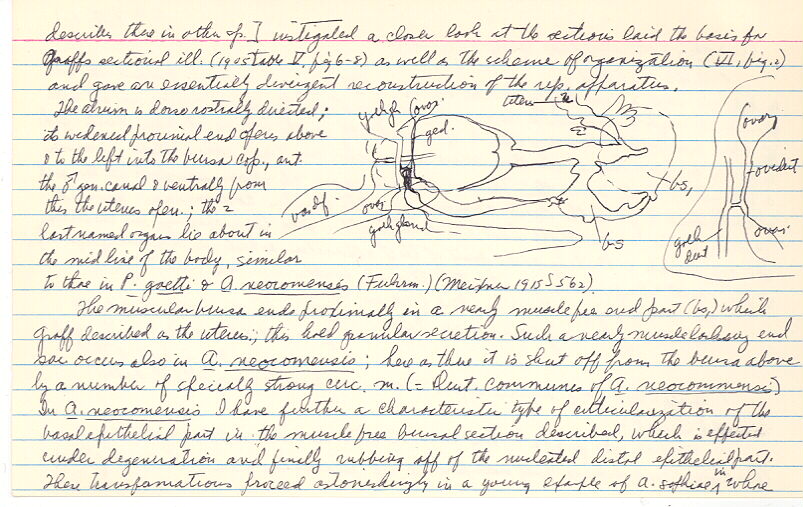 describes these in other sp. ] instigated a closer look at the sections laid the basis for
Graffs sectional ill. (1905 table V, fig 6-8) as well as the scheme of organization (VI, fig. 2)
and gave an essentially divergent reconstruction of the rep. apparatus.
The atrium is dorsorostrally directed;
its widened proximal end opens above
& to the left into the bursa cop., ant.
the ♂ gen. canal & ventrally from
this the uterus open.; the 2
last named organs lie about in
the mid line of the body, similar
to those in P. goetti & A. neocomensis (Fuhrm.) (Meixner 1915 S 562)
The muscular bursa ends proximally in a nearly muscle free end part (bs,) which
Graff described as the uterus; this had granular secretion. Such a nearly muscle lacking end
sac occurs also in A. neocomensis; here as there it is shut off from the bursa above
by a number of specially strong circ. m. (= Duct. communis of A. neocommensis)
In A. neocomensis I have further a characteristic type of cuticularization of the
basal epithelial part in the muscle free bursal section described, which is effected
under degeneration and finally rubbing off of the nucleated distal epithelial part.
These transformations proceed astonishingly in a young example of A. in where
uterus
ovar
ged.
vasdf.
ovar
bs,
bs
ovar
oviduct
ovar
duct